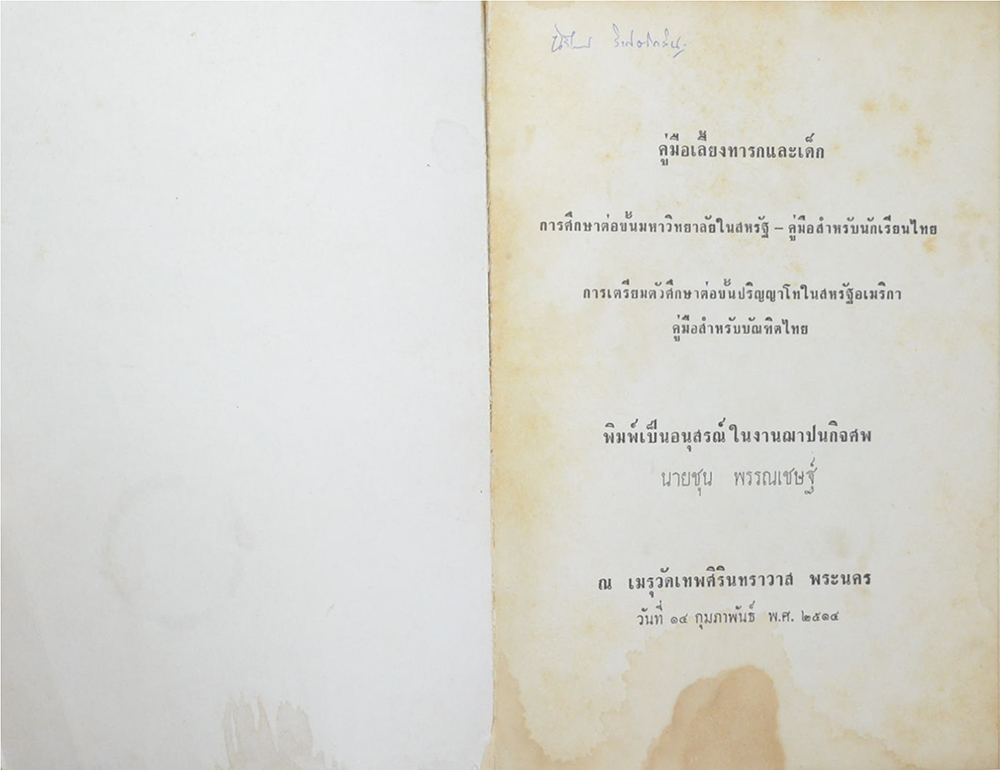 คู่มือเลี้ยงทารกและเด็ก
การศึกษาต่อขั้นมหาวิทยาลัยในสหรัฐ – คู่มือสำหรับนักเรียนไทย
การเตรียมตัวศึกษาต่อขั้นปริญญาโทในสหรัฐอเมริกา
คู่มือสำหรับบัณฑิตไทย
พิมพ์เป็นอนุสรณ์ ในงานฌาปนกิจศพ
นายชุน พรรณเชษฐ์
ณ เมรุวัดเทพศิรินทราวาส พระนคร
วันที่ ๑๔ กุมภาพันธ์ พ.ศ. ๒๕๑๔